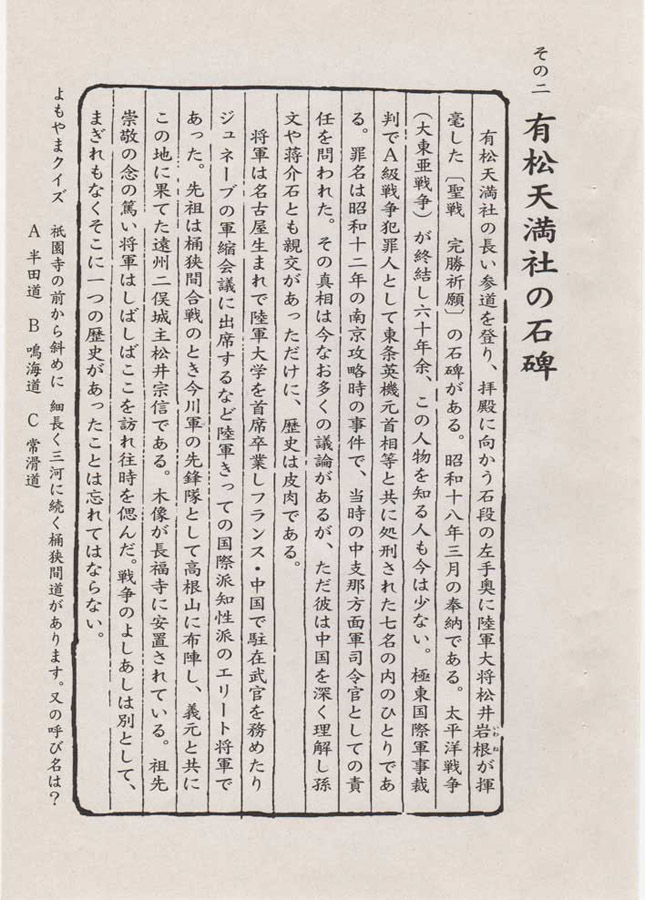 その二　有松天満社の石碑
有松天満社の長い参道を登り、拝殿に向かう石段の左手奥に陸軍大将松井岩根（いわね）が揮
毫した〔聖戦　完勝祈願〕の石碑がある。昭和十八年三月の奉納である。太平洋戦争
（大東亜戦争）が終結し六十年余、この人物を知る人も今は少ない。極東国際軍事裁
判でA級戦争犯罪人として東条英機元首相等と共に処刑された七名の内のひとりであ
る。罪名は昭和十二年の南京攻略時の事件で、当時の中支那方面軍司令官としての責
任を問われた。その真相は今なお多くの議論があるが、ただ彼は中国を深く理解し孫
文や蒋介石とも親交があっただけに、歴史は皮肉である。
将軍は名古屋生まれで陸軍大学を首席卒業しフランス・中国で駐在武官を務めたり
ジュネーブの軍縮会議に出席するなど陸軍きっての国際派知性派のエリート将軍で
あった。先祖は桶狭間合戦のとき今川軍の先鋒隊として高根山に布陣し、義元と共に
この地に果てた遠州二俣城主松井宗信である。木像が長福寺に安置されている。祖先
崇敬の念の篤い将軍はしばしばここを訪れ往時を偲んだ。戦争のよしあしは別として、
まぎれもなくそこに一つの歴史があったことは忘れてはならない。
よもやまクイズ　祇園寺の前から斜めに　細長く三河に続く桶狭間道があります。又の呼び名は？
A 半田道　B 鳴海道　C 常滑道